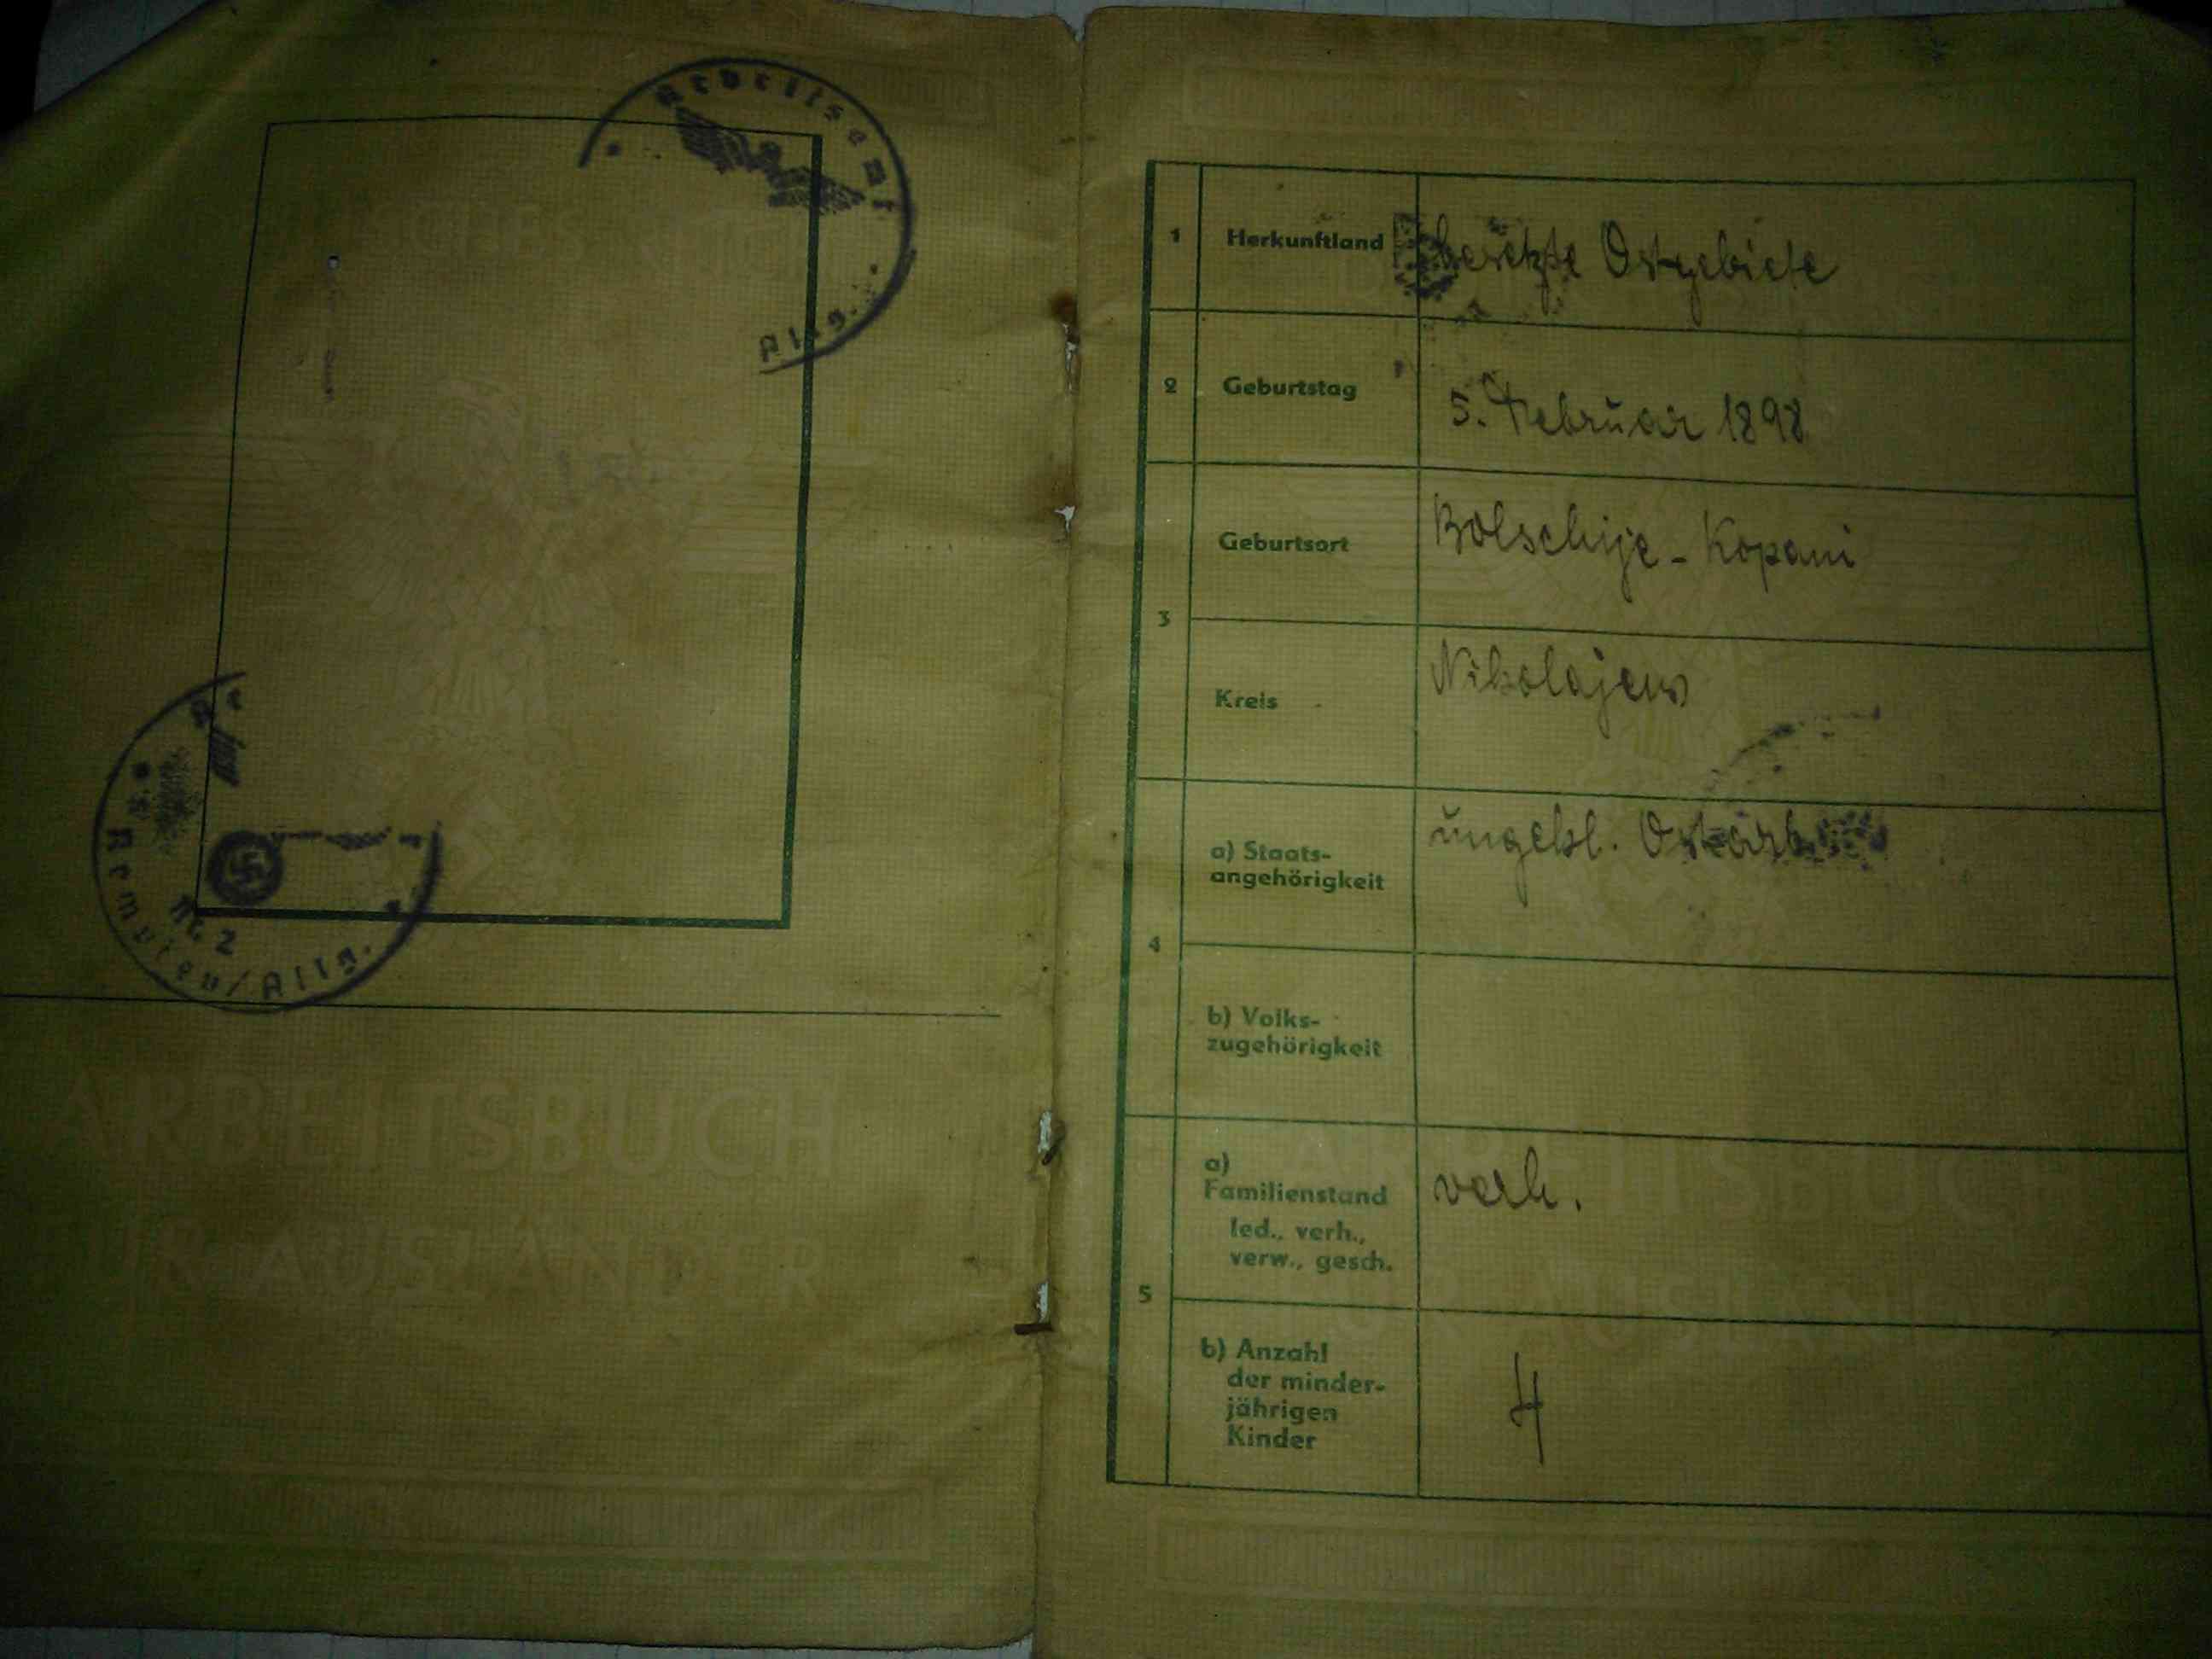 Arbeitsamt
Allg.
Nr. 2
Kempten/Allg.
ARBEITSBUCH
FÜR AUSLÄNDER
1 Herkunftland besetzte Ostgebiete
2 Geburtstag 5. Februar 1898
3 Geburtsort Bolschije-Kopani
Kreis Nikolajew
4 a) Staats-
angehörigkeit ungekl. Ostarb
b) Volks-
zugehörigkeit
5 a)
Familienstand verh.
led., verh.,
verw., gesch.
b) Anzahl
der minder-
jährigen
Kinder 4
ARBEITSBUCH
FÜR AUSLÄNDER